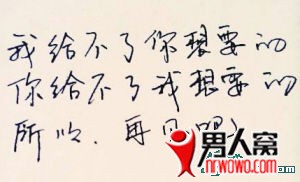 我给不了你想要的
你给不了我想要的
所以、再见吧
男人窝
www.nrwowo.com